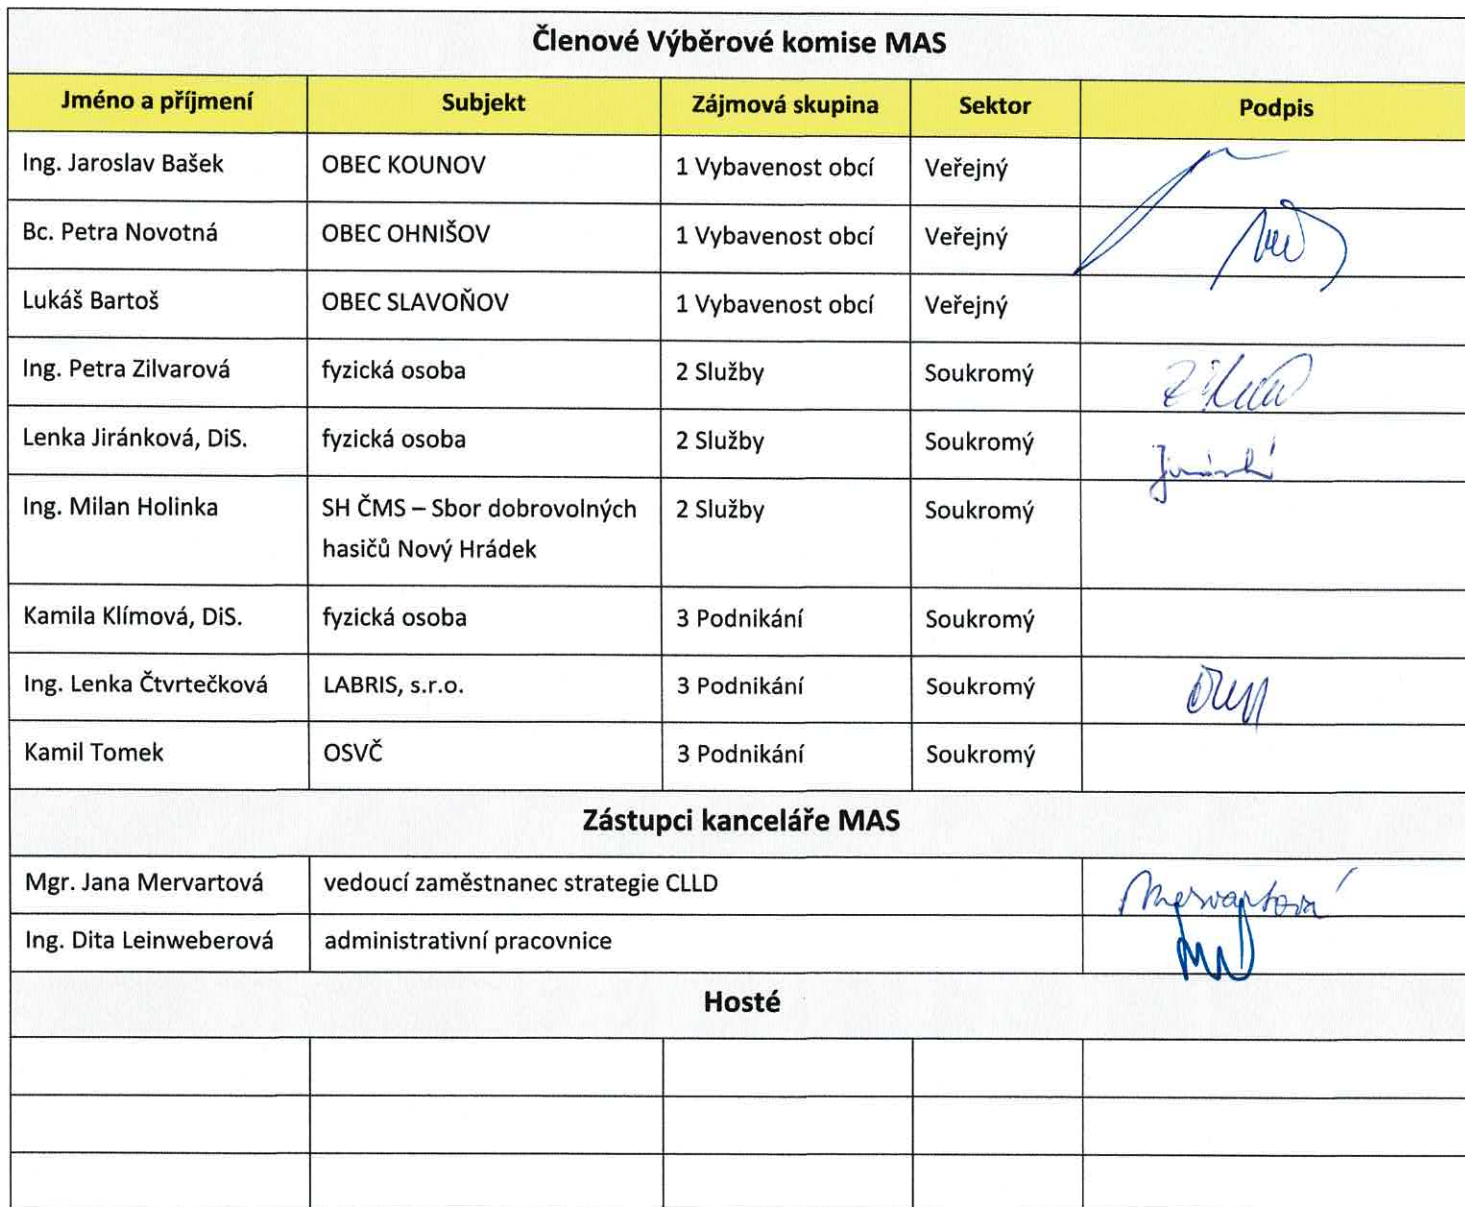 Členové Výběrové komise MAS
Jméno a příjmení Subjekt Zájmová skupina Sektor Podpis
Ing. Jaroslav Bašek OBEC KOUNOV 1 Vybavenost obcí Veřejný
Bc. Petra Novotná OBEC OHNIŠOV 1 Vybavenost obcí Veřejný
Lukáš Bartoš OBEC SLAVOŇOV 1 Vybavenost obcí Veřejný
Ing. Petra Zilvarová fyzická osoba 2 Služby Soukromý
Lenka Jiránková, DiS. fyzická osoba 2 Služby Soukromý
Ing. Milan Holinka SH ČMS – Sbor dobrovolných 2 Služby Soukromý
hasičů Nový Hrádek
Kamila Klímová, DiS. fyzická osoba 3 Podnikání Soukromý
Ing. Lenka Čtvrtečková LABRIS, s.r.o. 3 Podnikání Soukromý
Kamil Tomek OSVČ 3 Podnikání Soukromý
Zástupci kanceláře MAS
Mgr. Jana Mervartová vedoucí zaměstnanec strategie CLLD Mervartová
Ing. Dita Leinweberová administrativní pracovnice
Hosté